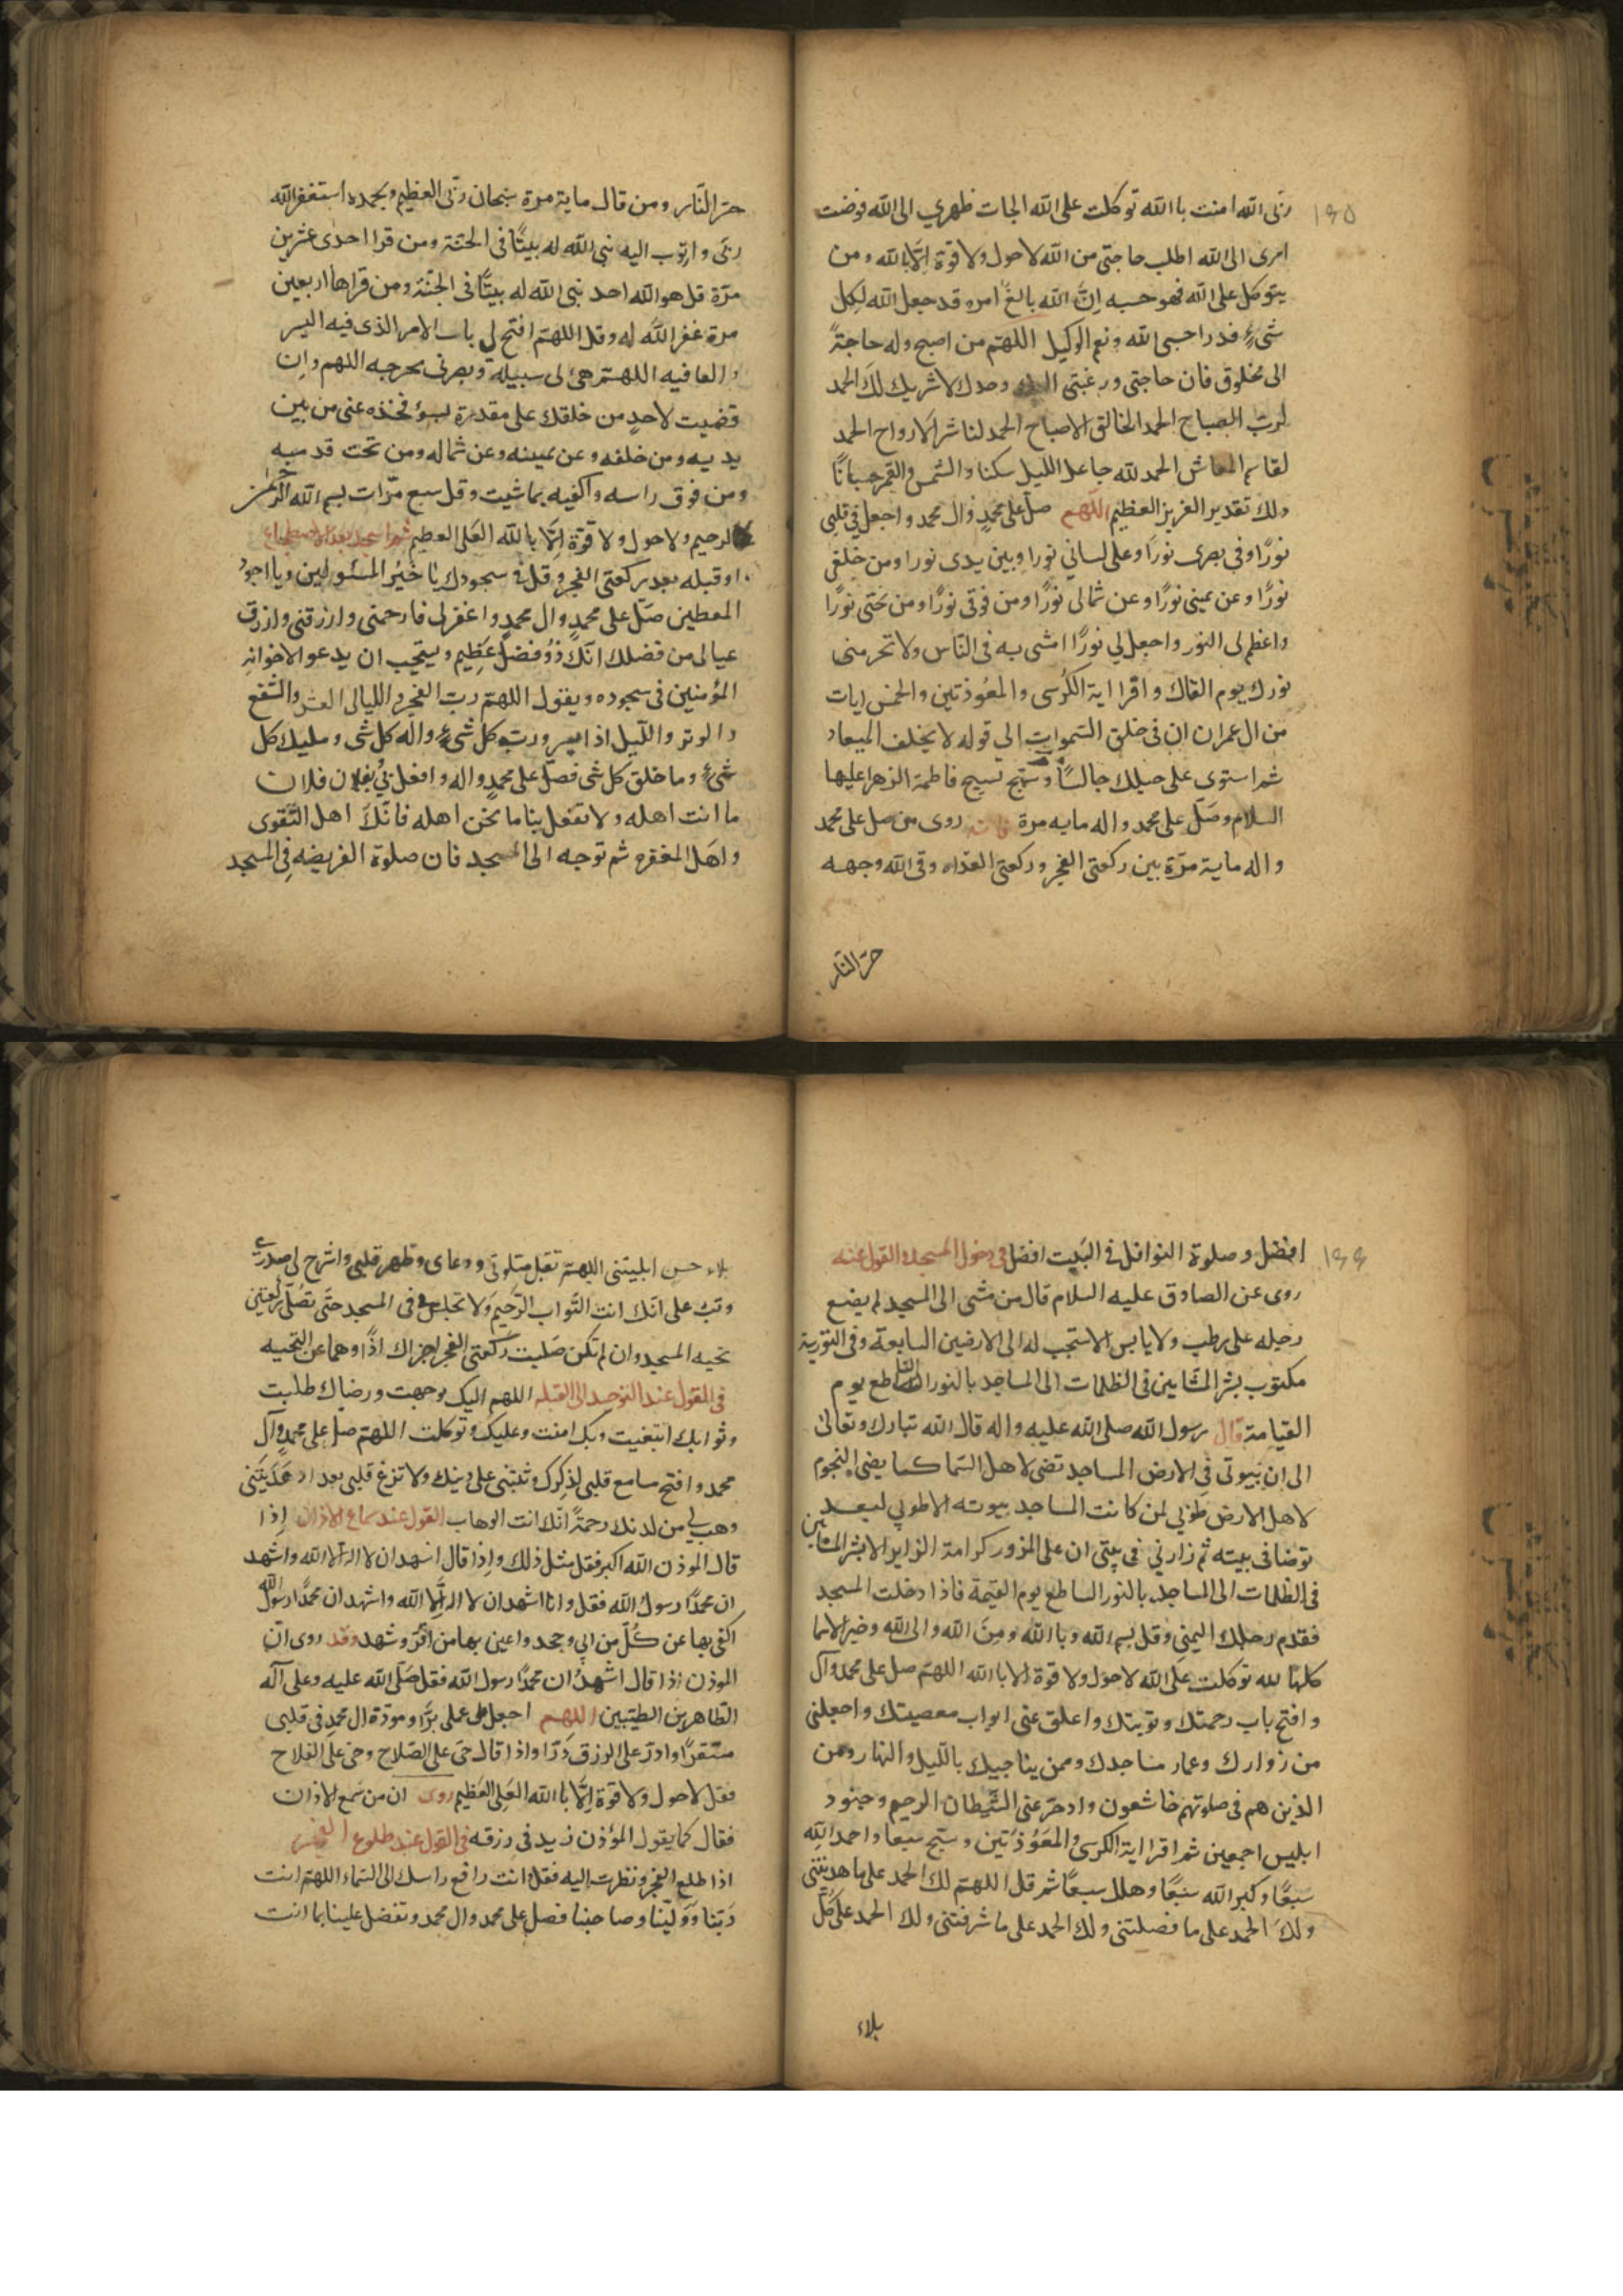 ١٩٥
ربی الله امنت باالله توكلت علی الله الجات ظهري الی الله فوضت
امری الی الله اطلب حاجتی من الله لا حول ولا قوة الّا بالله ومن
يتوكل علی الله فهو حسبه انّ الله بالغ امره قد جعل الله لكل
شیءٍ قدرا حسبی الله ونعم الوكيل اللهتم من اصبح وله حاجةً
الی مخلوق فان حاجتی ورغبتی اليك وحدك لا شريك لكَ الحمد
لربّ الصباح الحمد لخالق الاصباح الحمد لناشر الارواح الحمد
لقاسم المعاش الحمد لله جاعل الليل سكنا والشمس والقمر حسبانًا
ذلك تقدير العزيز العظيم اللّهم صلّ علی محمدٍ وال محمد واجعل فی قلبی
نورًا وفی بصری نورًا وعلی لسانی نورا وبين يدی نورا ومن خلفی
نورًا وعن يمينی نورًا وعن شمالی نورًا ومن فوقی نورًا ومن تحتی نورًا
واعظم لی النور واجعل لي نورًا امشی به فی النّاس ولا تحرمنی
نورك يوم القاك واقرا اية الكُرسی والمعُوذتين والخمس ايات
من ال عمران ان فی خلق السّموات الی قوله لا يخلف الميعاد
ثم استوی علی حبلك جالسًا وسبّح تسبيح فاطمة الزهرا عليها
السلام وصَلّ علی محمد واله مايه مرة فانه روی من صل علی محمد
واله ماية مرّة بين ركعتی الفجر وركعتی الغداه وقی الله وجهه
حرّ النّار
حرّ النّار ومن قال ماية مرة سبحان ربّی العظيم وبحمده استغفر الله
ربّی واتوب اليه بنی الله له بيتًا فی الجنّة ومن قرا احدی عشرين
مرّة قل هو الله احد بنی الله له بيتًّا فی الجنّة ومن قراها اربعين
مرة غفر الله له وقل اللهتم افتح لي باب الامر الذی فيه اليسر
والعافيه اللهتم هیّ لی سبيله وبصرنی مخرجه اللهم وان
قضيت لاحدٍ من خلقك علی مقدرة بسوٍ فخذه عنی من بين
يديه ومن خلفه وعن يمينه وعن شماله ومن تحت قدميه
ومن فوق راسه واكفيه بما شيت وقل سبع مرّات بسم الله الرحمٰن
الرحيم ولا حول ولا قوّة الّا بالله العَلی العظيم ثم اسجد بعد الاضطجاع
او قبله بعد ركعتی الفجر وقل فی سجودك يا خيرُ المسئولين ويا اجودُ
المعطين صَلّ علی محمدٍ وال محمدٍ واغفر لی فارحمنی وارزقنی وارزق
عيالی من فضلك انّكَ ذُو فضل عظيم ويستحب ان يدعو الاخوانهِ
المؤمنين فی سجوده ويقول اللهتم ربّ الفجر والليالی العشر والشفع
والوتر واللّيل اذا يسر وربّ كل شیءٍ واله كل شی ومليك كل
شیءٍ وما خلق كل شی فصلّ علی محمدٍ واله وافعل بی وُبفلان فلان
ما انت اهله ولا تفعل بنا ما نحن اهله فانّكَ اهل التّقوی
واهَل المغفره ثم توجه الی المسجد فان صلوة الفريضه فِی المسجد
١٩٩
افضل وصلوة النوافل فی البَيت افضل فی دخول المسجد والقول عنه
روی عن الصادق عليه السلام قال من مشی الی المسجد لم يضع
رجله علی رطب ولا يابس الا سبحت له الی الارضين السابعة وفی التورية
مكتوب بشر المشّايين فی الظلمات الی المساجد بالنور الساطع يوم
القيامة قال رسول الله صلی الله عليه واله قال الله تبارك وتعالی
الی ان بَيوتی فی الارض المساجد تضی لاهل السّما كما يضی النجوم
لاهل الارض طوبي لمن كانت المساجد بيوته الا طوبي لعبد
توضا فی بيته ثم زارني فی بيتی ان علی المزور كرامة الزاير الا بشر المشايين
فی الظلمات الی المساجد بالنور الساطع يوم القيمة فاذا دخلت المسجد
فقدم رجلك اليمنی وقل بسم الله وباالله ومِنَ الله والی الله وخير الاسما
كلها لله توكلت علی الله لا حول ولا قوة الا باالله اللهتم صل علی محمد وال
وافتح باب رحمتك وتوبتك واغلق عنی ابواب معصيتك واجعلنی
من زوارك وعمار مساجدك وممن يناجيك باللّيل والنهار ومن
الذين هم فی صلوتهم خاشعون وادحر عنی الشّيطان الرجيم وجنود
ابليس اجمعين ثم اقرا اية الكرسی والمعَوُذتين وسبّح سبعا واحمد الله
سبعًا وكبر الله سَبعًا وهلل سبعًا ثم قل اللهتم لك الحمد علی ما هديتنی
ولكَ الحمد علی ما فضلتنی ولك الحمد علی ما شرفتنی ولك الحمد علی كلّ
بلاء
بلاء حسن ابليتنی اللهتم تقبل صلوتی ودعای وطهر قلبی واشرح لی صدری
وتبُ علی انّك انت التّواب الرّحيم وَلا تجلس فی المسجد حتّی تصلّی ركعتين
تحيه المسجد وان لم تكن صَليت ركعتی الفجر اجزاك اذّا وهما عن التحيه
فی القول عند التوجه الی القبله اللهم اليك توجهت ورضاك طلبت
وثوابك ابتغيت وبك امنت وعليك وتوكلت اللهتم صل علی محمدٍ وآل
محمد وافتح مسامع قلبی لذكرك وثبتنی علی دينك ولا تزغ قلبی بعد اذ هَدَيتَنی
وهب لي من لدنك رحمةً انّك انت الوهاب القول عند سماع الاذان اِذا
قال الموذن الله اكبر فقل مثل ذلك واِذا قال اشهد ان لا اله الا الله واشهد
ان محمدًا رسول الله فقل وانا اشهد ان لا اله اِلّا الله واشهد ان محمدًا رسول الله
اكفی بها عن كُلّ من ابي وجحد واعين بها من اقرّ وشهد وقد روی انّ
الموذن اذا قال اشهدُ ان محمدًا رسول الله فقل صَلّی الله عليه وعلی آله
الطاهرين الطيّبين اللهم اجعل عملی برًّا ومودّة ال محمدٍ فی قلبی
مستقرّا وادرّ علی الرزق دَرّا واذا قال حیّ علی الصّلاح وحی علی الفلاح
فقل لا حول ولا قوة اِلّا باالله العَلِی العظيم روی ان من سَمع الاذان
فقال كما يقول المؤذن زيد في رزقه فی القول عند طلوع الفجر
اذا طلع الفجر ونظرت اليه فقل وانت رافع راسك الی السّماء اللهتم انت
رَبّنا وَوَليّنا وصاحبنا فصل علی محمد وال محمد وتفضل علينا بما انت